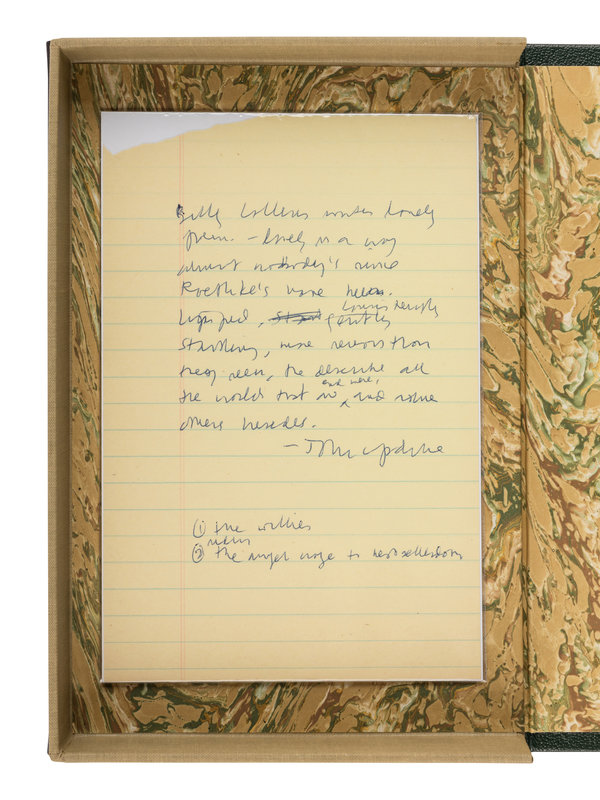 Billy Collins writes lovely
poems. – lovely in a way
almost nobody's since
Roethke's have been.
Limpid, gently
startling, more serious than
they seem, they describe all
the worlds that are and were, and some
others besides.
– John Updike
① the willies
②
the angel urge to